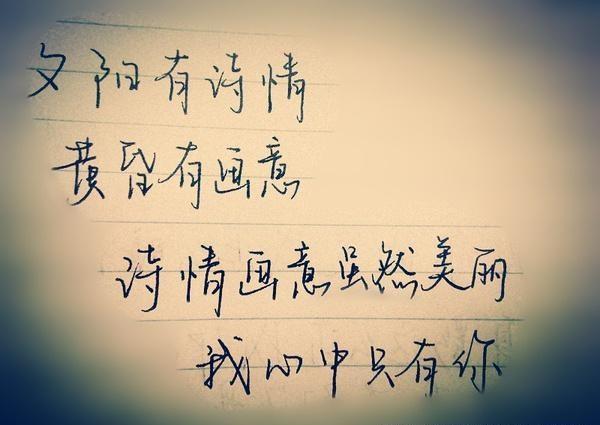 夕阳有诗情
黄昏有画意
诗情画意虽然美丽
我心中只有你